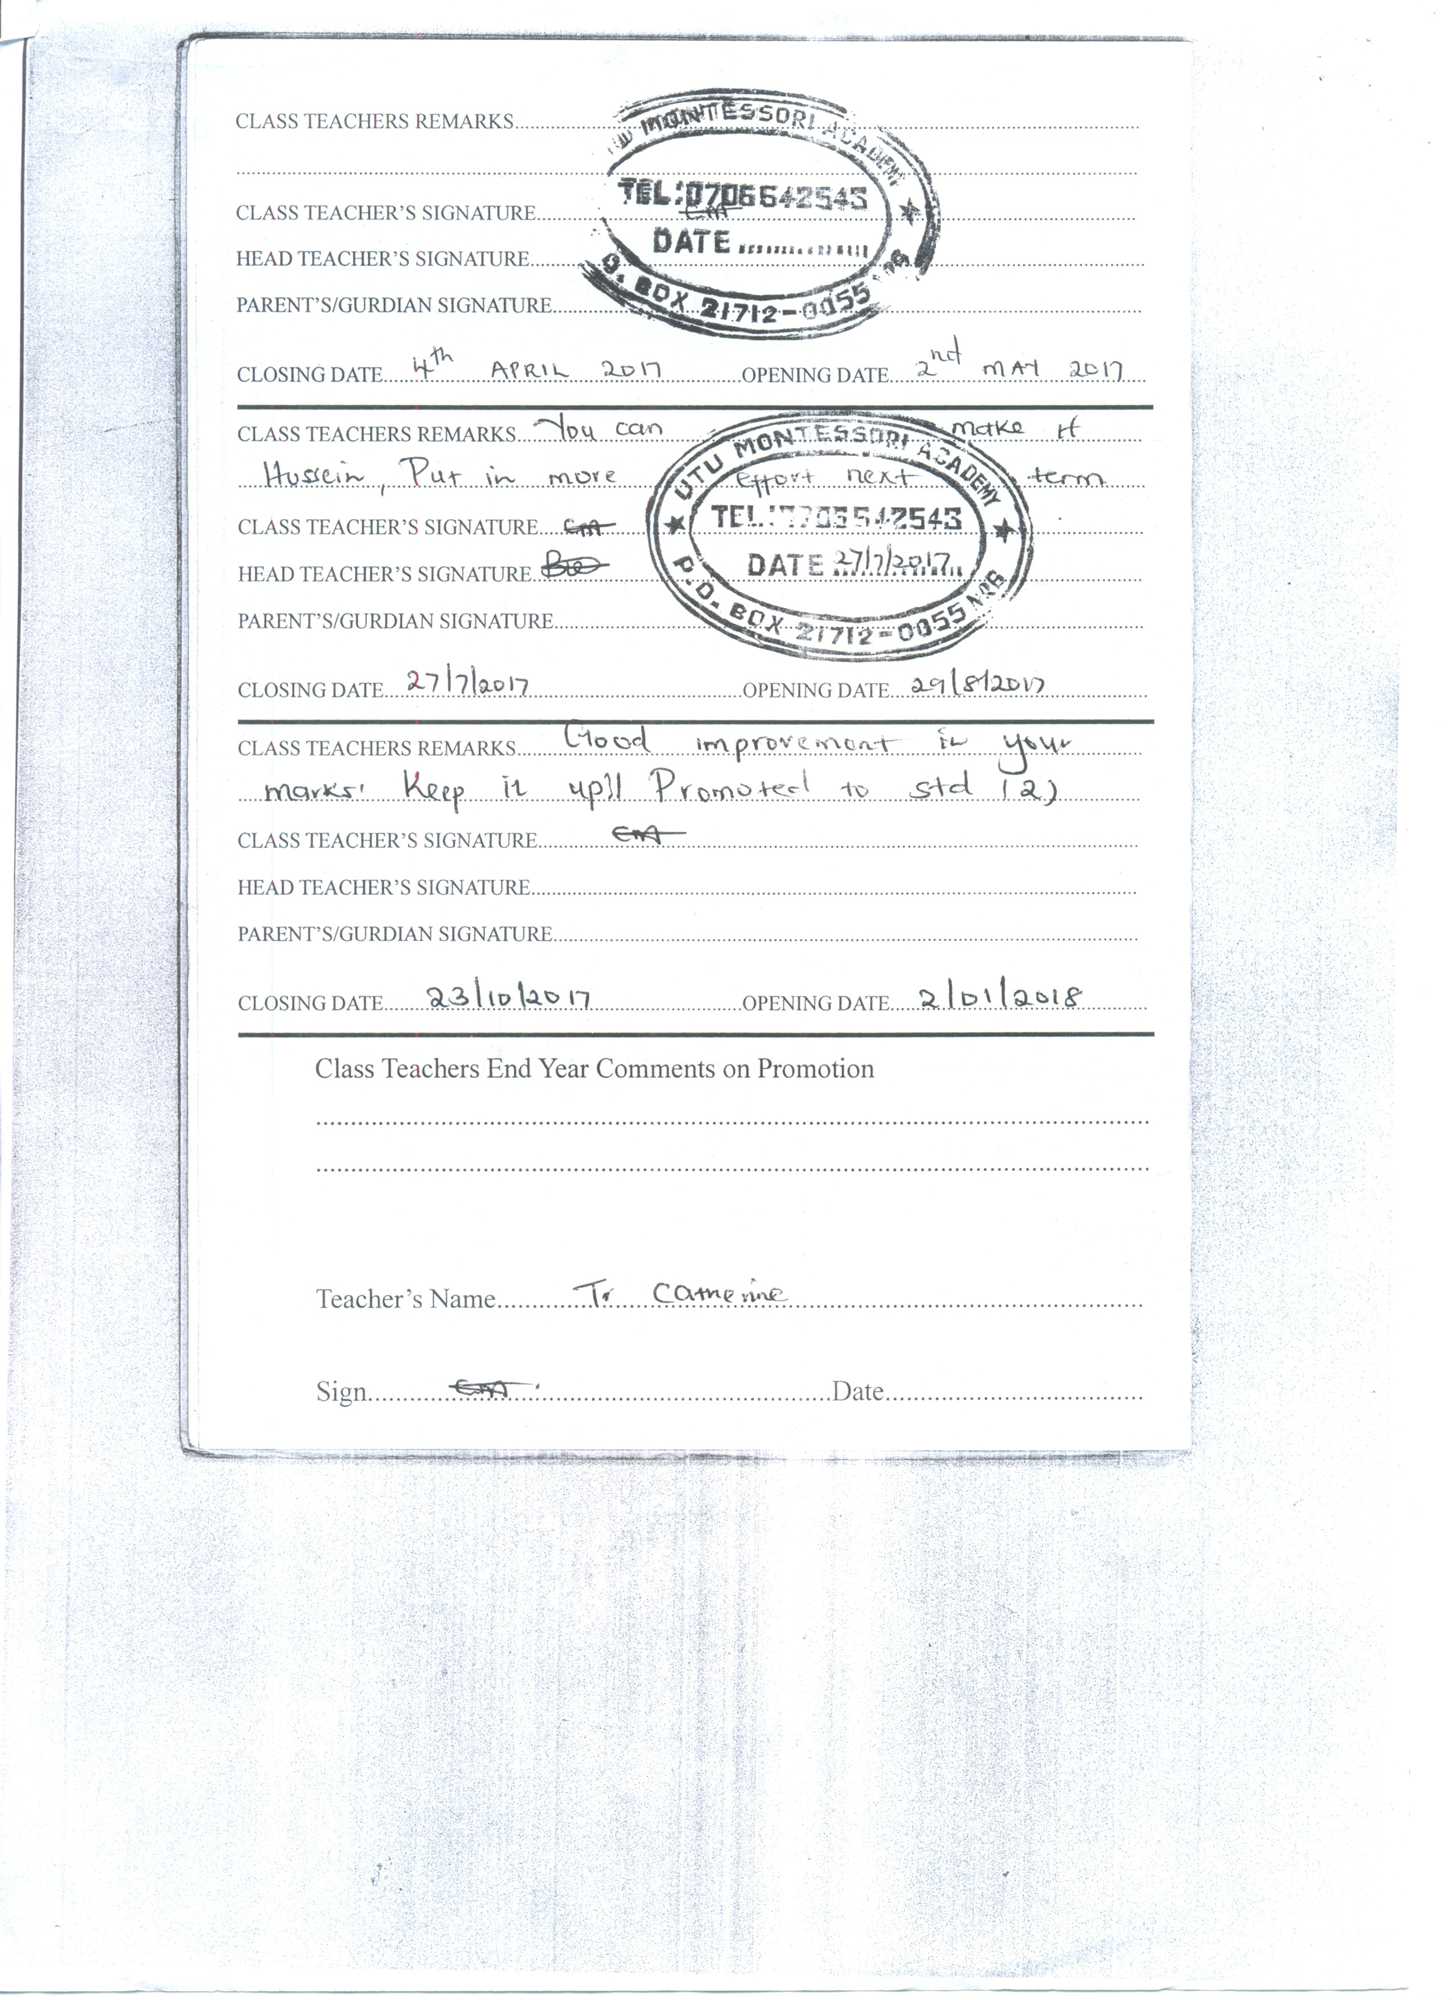 CLASS TEACHERS REMARKS
MONTESSORI ACADEMY
TEL:0706542543
CLASS TEACHER'S SIGNATURE
DATE
HEAD TEACHER'S SIGNATURE
O. BOX 21712-0055
PARENT'S/GURDIAN SIGNATURE
CLOSING DATE 4th APRIL 2017 OPENING DATE 2nd MAY 2017
CLASS TEACHERS REMARKS You can make it
UTU MONTESSORI ACADEMY
Hussein, Put in more effort next term
CLASS TEACHER'S SIGNATURE
TEL:0706542543
HEAD TEACHER'S SIGNATURE
DATE 27/7/2017
P.O. BOX 21712-0055
PARENT'S/GURDIAN SIGNATURE
CLOSING DATE 27/7/2017 OPENING DATE 29/8/2017
CLASS TEACHERS REMARKS Good improvement in your
marks. Keep it up!! Promoted to std (2)
CLASS TEACHER'S SIGNATURE
HEAD TEACHER'S SIGNATURE
PARENT'S/GURDIAN SIGNATURE
CLOSING DATE 23/10/2017 OPENING DATE 2/01/2018
Class Teachers End Year Comments on Promotion
Teacher's Name Tr Catherine
Sign Date